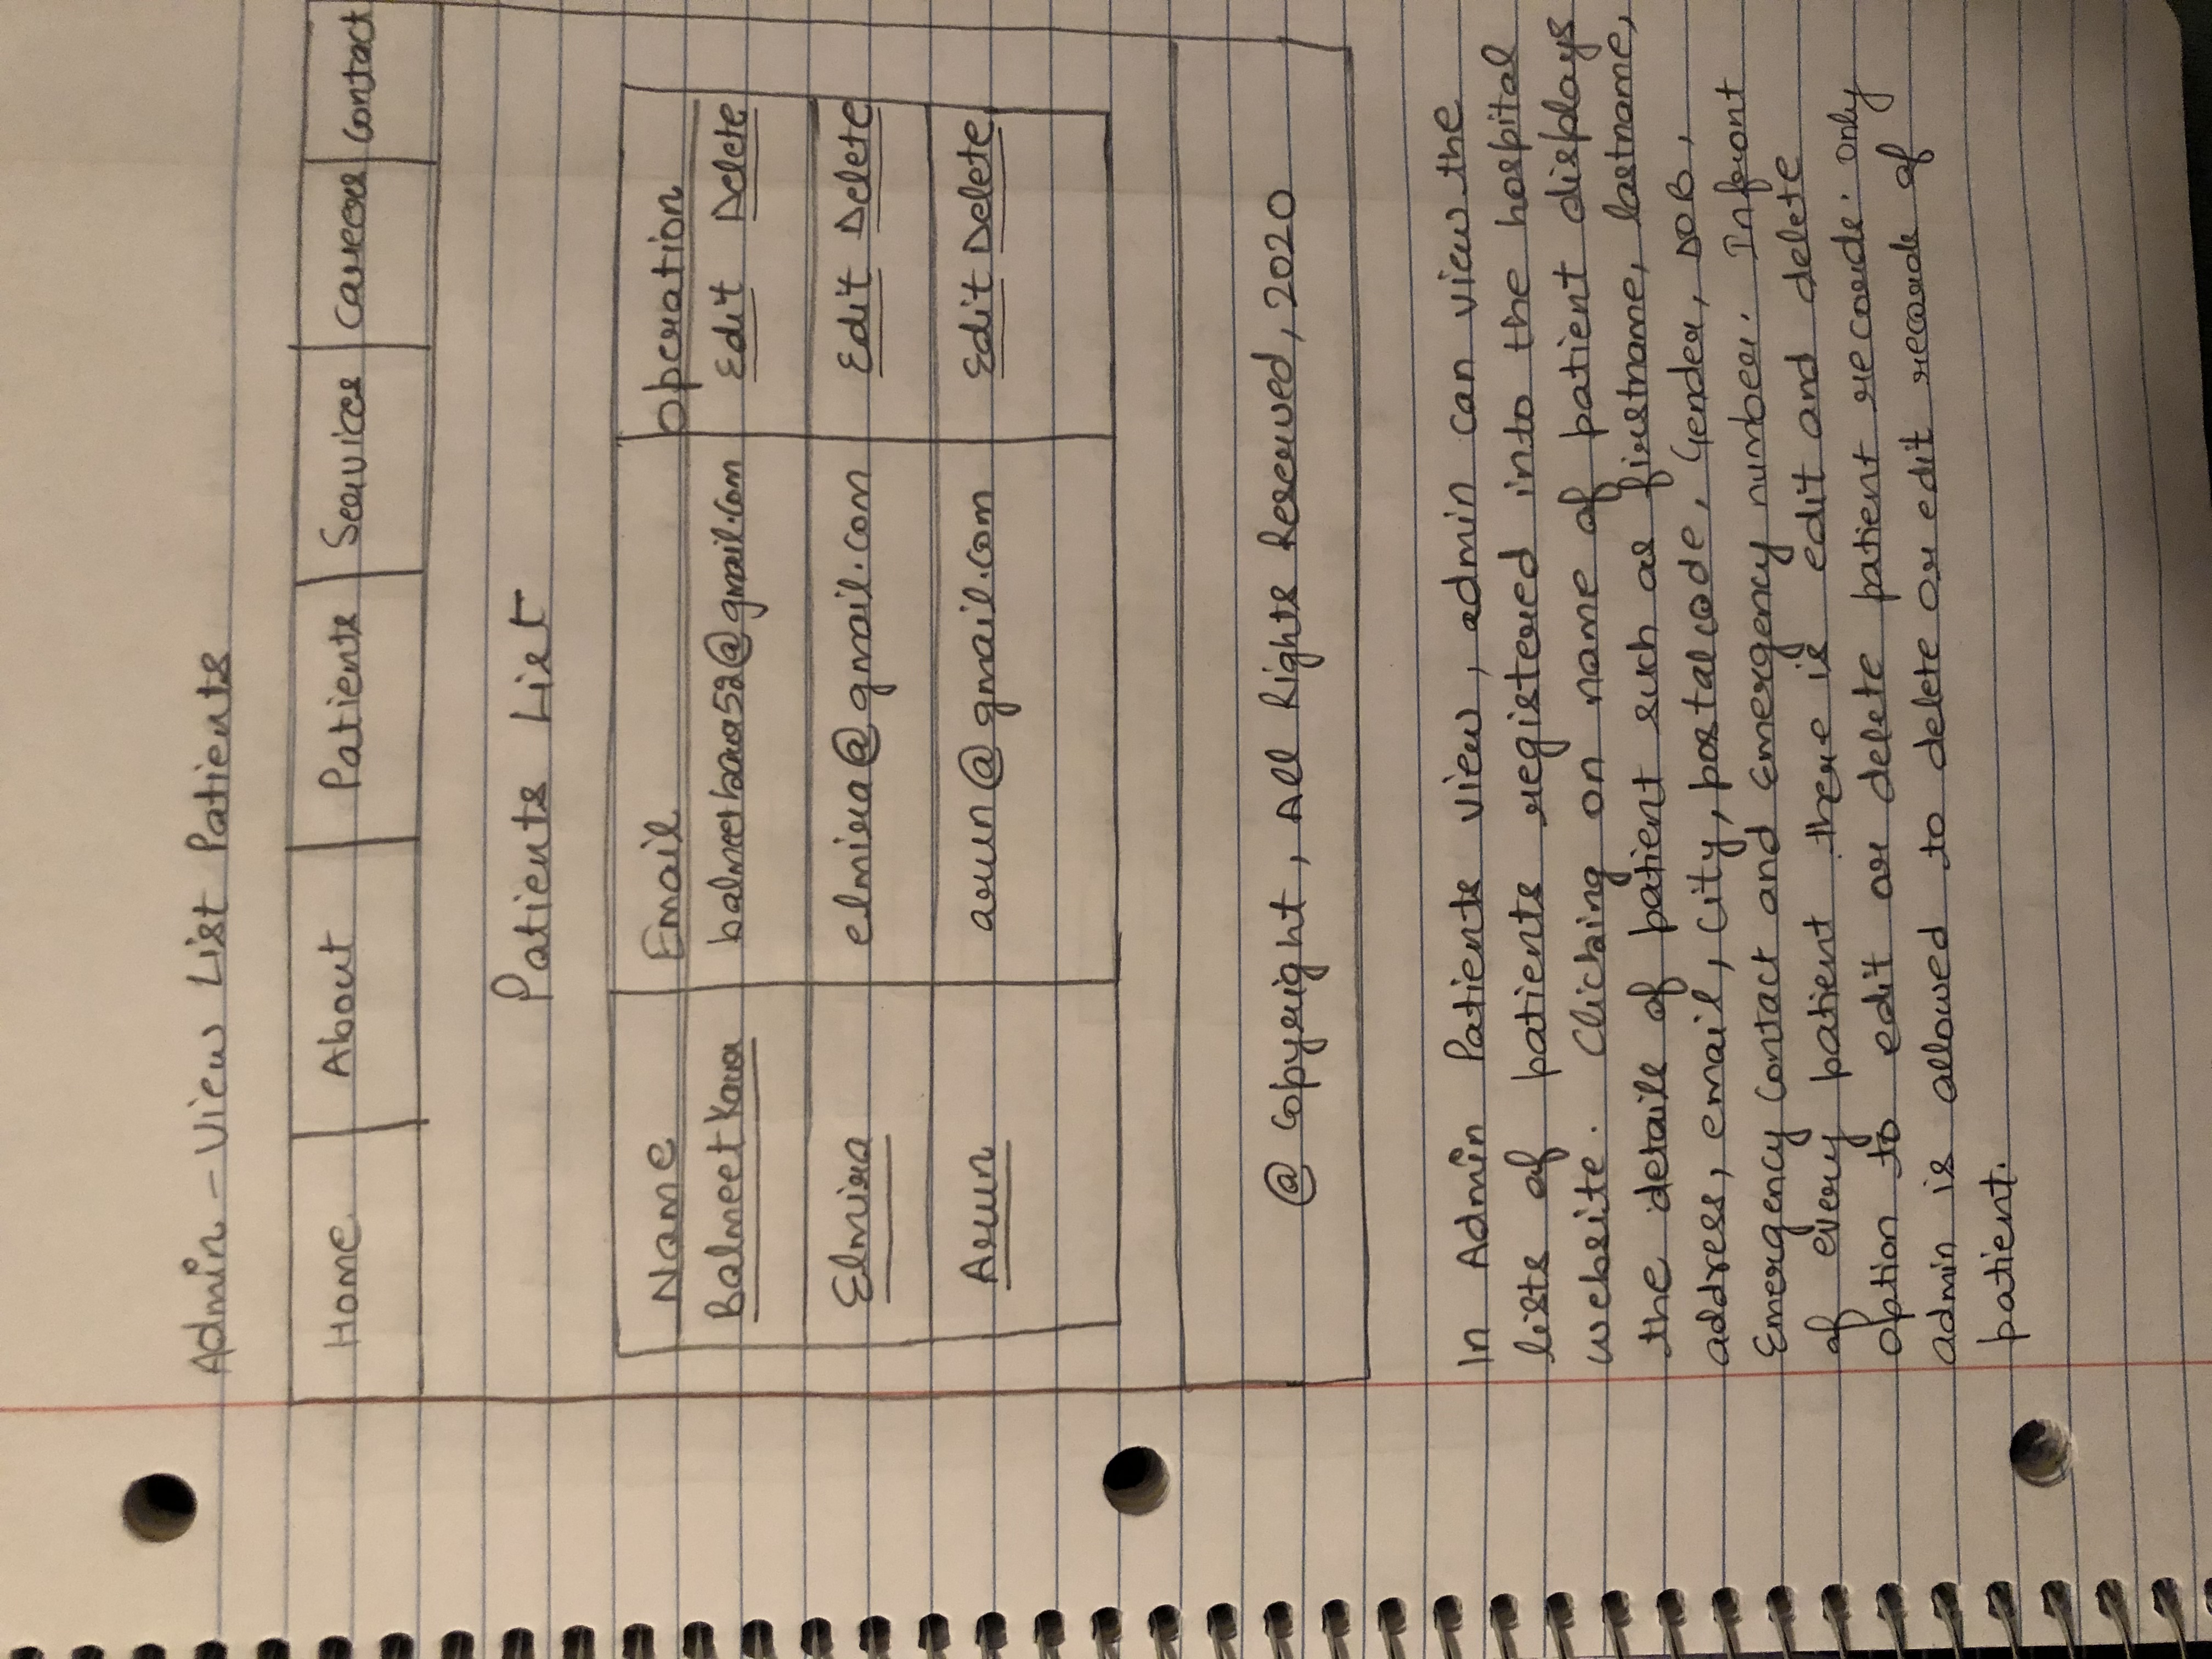 Admin - View List Patients
Home About Patients Services Careers Contact
Patients List
Name Email Operation
Balmeet Kaur balmeetkaur52@gmail.com Edit Delete
Elmira elmira@gmail.com Edit Delete
Arun arun@gmail.com Edit Delete
@ Copyright, All Rights Reserved, 2020
In Admin Patients View, admin can view the
lists of patients registered into the hospital
website. Clicking on name of patient displays
the details of patient such as firstname, lastname,
address, email, City, postal code, Gender, DOB,
Emergency Contact and Emergency number. Infront
of every patient there is edit and delete
option to edit or delete patient records. Only
admin is allowed to delete or edit records of
patient.